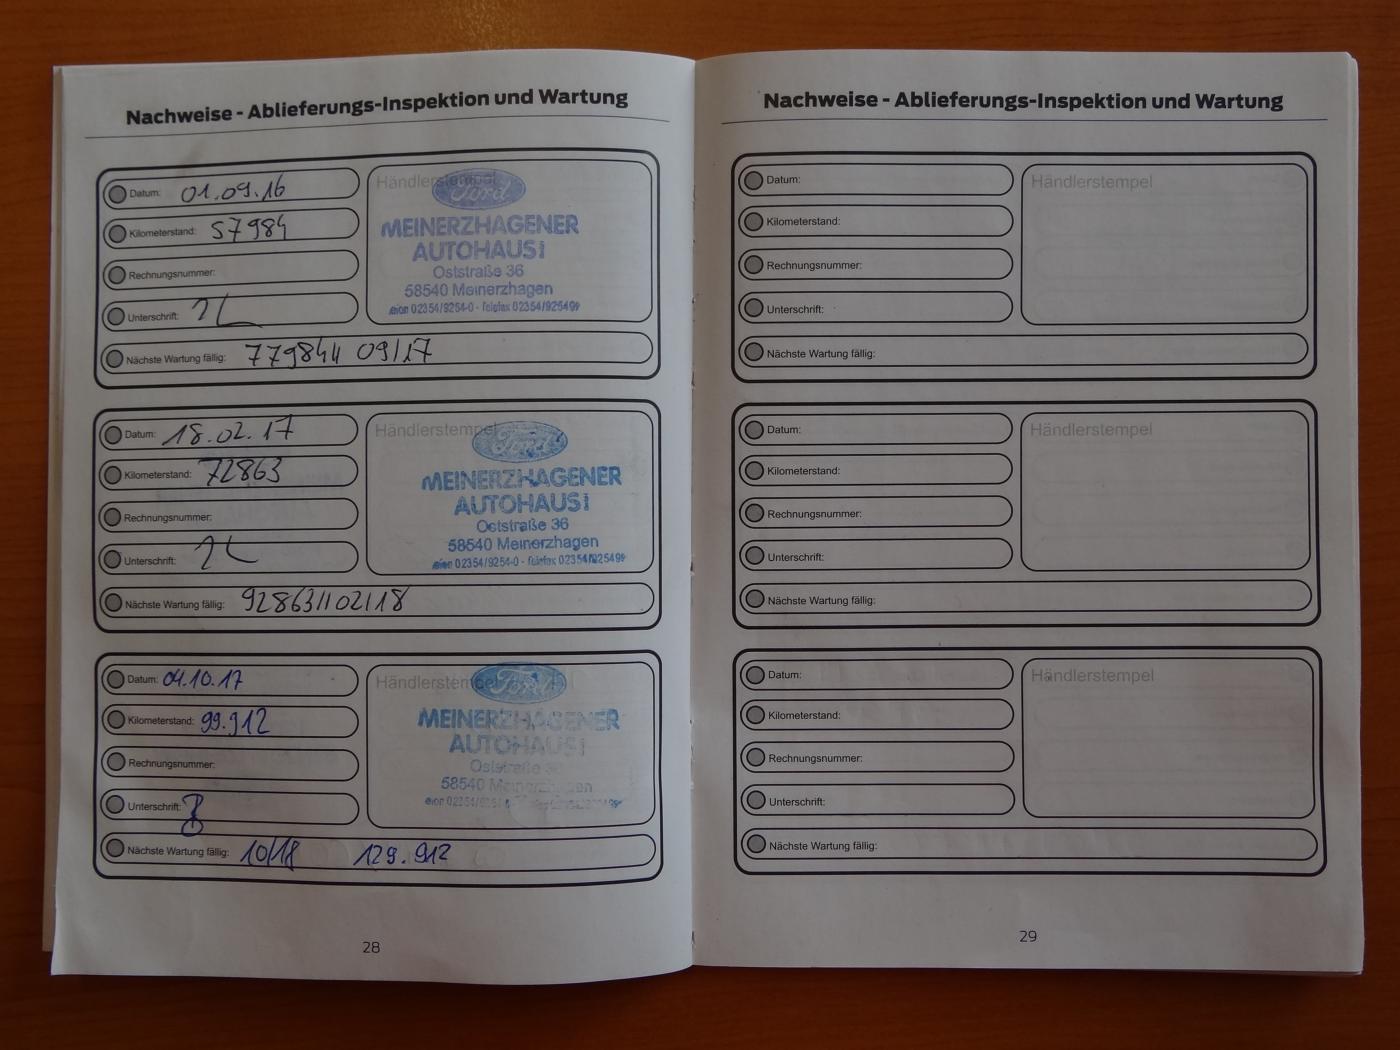 Nachweise - Ablieferungs-Inspektion und Wartung
Datum: 01.09.16
Kilometerstand: 57984
Rechnungsnummer:
Unterschrift:
Händlerstempel
Ford
MEINERZHAGENER
AUTOHAUS
Oststraße 36
58540 Meinerzhagen
02354/9254-0 - Telefax 02354/925499
Nächste Wartung fällig: 09/17
Datum: 18.02.17
Kilometerstand: 72863
Rechnungsnummer:
Unterschrift:
Händlerstempel
Ford
MEINERZHAGENER
AUTOHAUS
Oststraße 36
58540 Meinerzhagen
02354/9254-0 - Telefax 02354/925499
Nächste Wartung fällig: 92863//02/18
Datum: 04.10.17
Kilometerstand: 99.912
Rechnungsnummer:
Unterschrift:
Händlerstempel
Ford
MEINERZHAGENER
AUTOHAUS
Oststraße
58540 Meinerzhagen
Nächste Wartung fällig: 10/18 129.912
28
Nachweise - Ablieferungs-Inspektion und Wartung
Datum:
Kilometerstand:
Rechnungsnummer:
Unterschrift:
Händlerstempel
Nächste Wartung fällig:
Datum:
Kilometerstand:
Rechnungsnummer:
Unterschrift:
Händlerstempel
Nächste Wartung fällig:
Datum:
Kilometerstand:
Rechnungsnummer:
Unterschrift:
Händlerstempel
Nächste Wartung fällig:
29